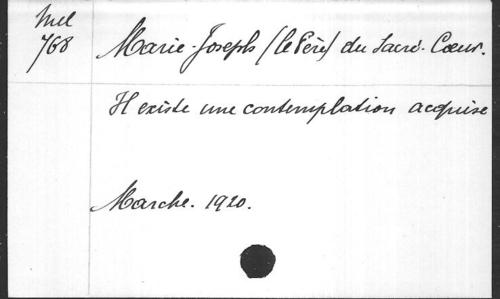 Mel
768
Marie-Joseph (le Père) du Sacré-Cœur.
Il existe une contemplation acquise
Marche. 1920.